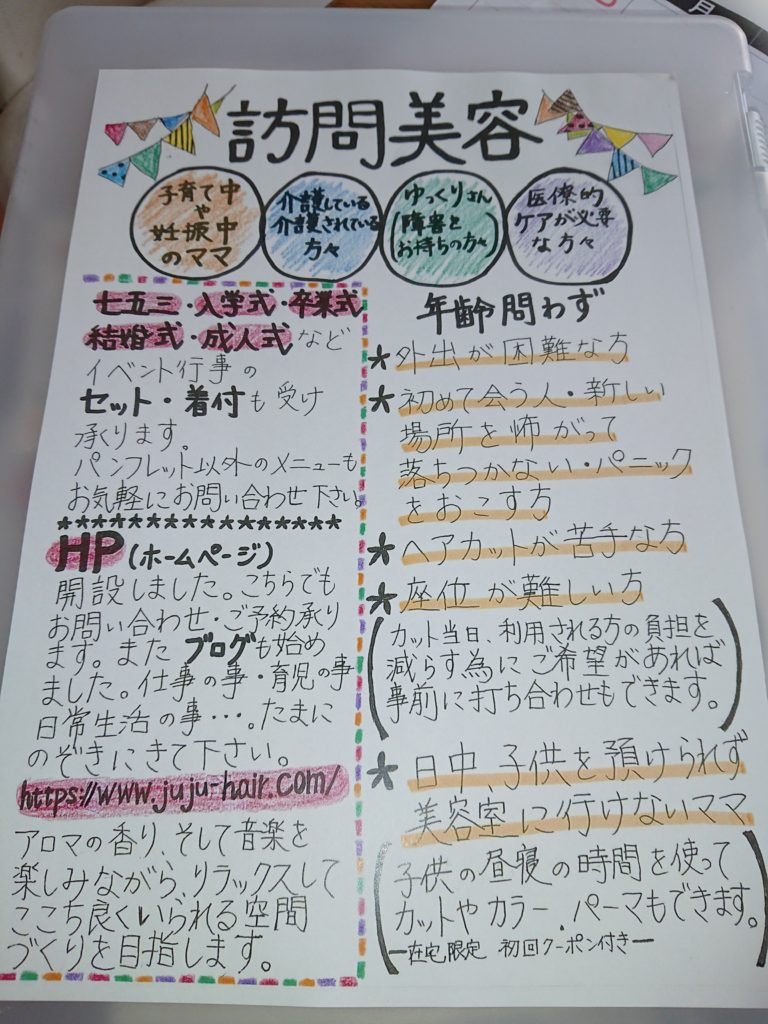 月
訪問美容
子育て中
や
妊娠中
のママ
介護している
介護されている
方々
ゆっくりさん
(障害を
お持ちの方々)
医療的
ケアが必要
な方々
七五三・入学式・卒業式
結婚式・成人式など
イベント行事の
セット・着付も受け
承ります。
パンフレット以外のメニューも
お気軽にお問い合わせ下さい。
★★★★★★★★★★★★★★★★★★
HP(ホームページ)
開設しました。こちらでも
お問い合わせ・ご予約承り
ます。またブログも始め
ました。仕事の事・育児の事
日常生活の事・・・。たまに
のぞきにきて下さい。
https://www.juju-hair.com/
アロマの香り、そして音楽を
楽しみながら、リラックスして
ここち良くいられる空間
づくりを目指します。
年齢問わず
★外出が困難な方
★初めて会う人・新しい
場所を怖がって
落ちつかない・パニック
をおこす方
★ヘアカットが苦手な方
★座位が難しい方
(カット当日、利用される方の負担を
減らす為にご希望があれば
事前に打ち合わせもできます。)
★日中子供を預けられず
美容室に行けないママ
(子供の昼寝の時間を使って
カットやカラー、パーマもできます。
ー在宅限定 初回クーポン付きー)